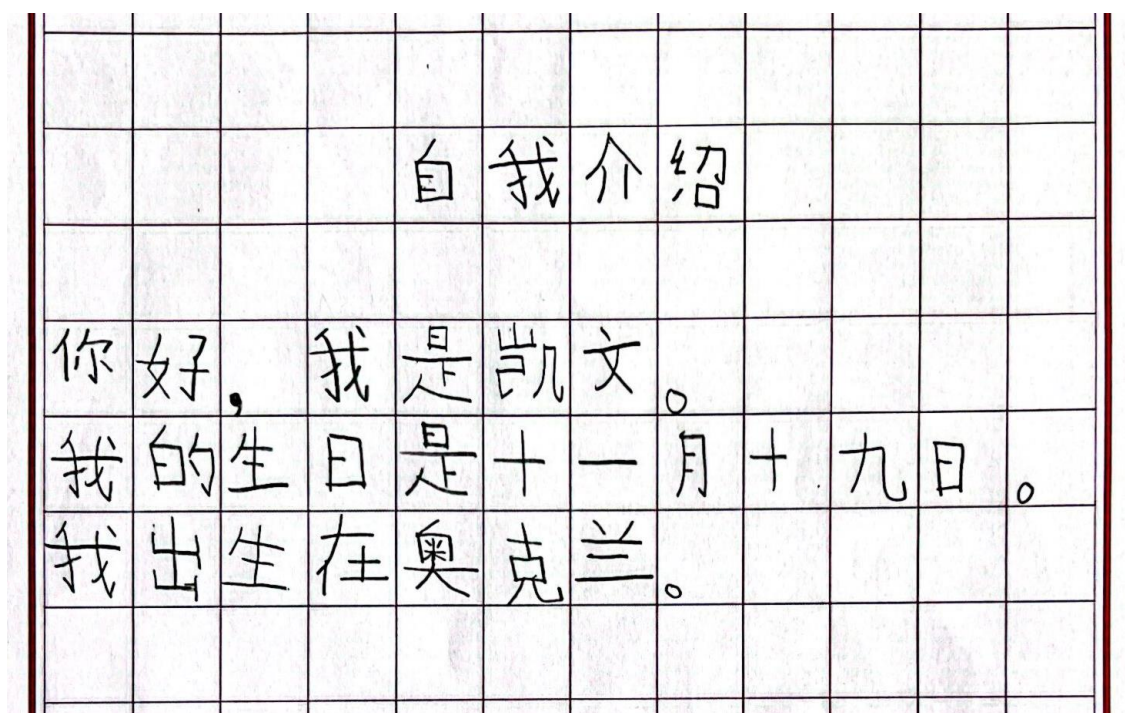 自我介绍
你好，我是凯文。
我的生日是十一月十九日。
我出生在奥克兰。